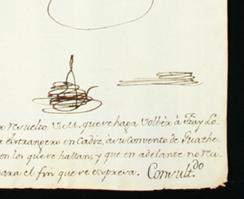 resuelto V.M. que se haga volber à Fray Lo
Extrangero en Cadiz, à su Convento de
en los que se hallan, y que en adelante no
para el fin que se expresa. Consult.do